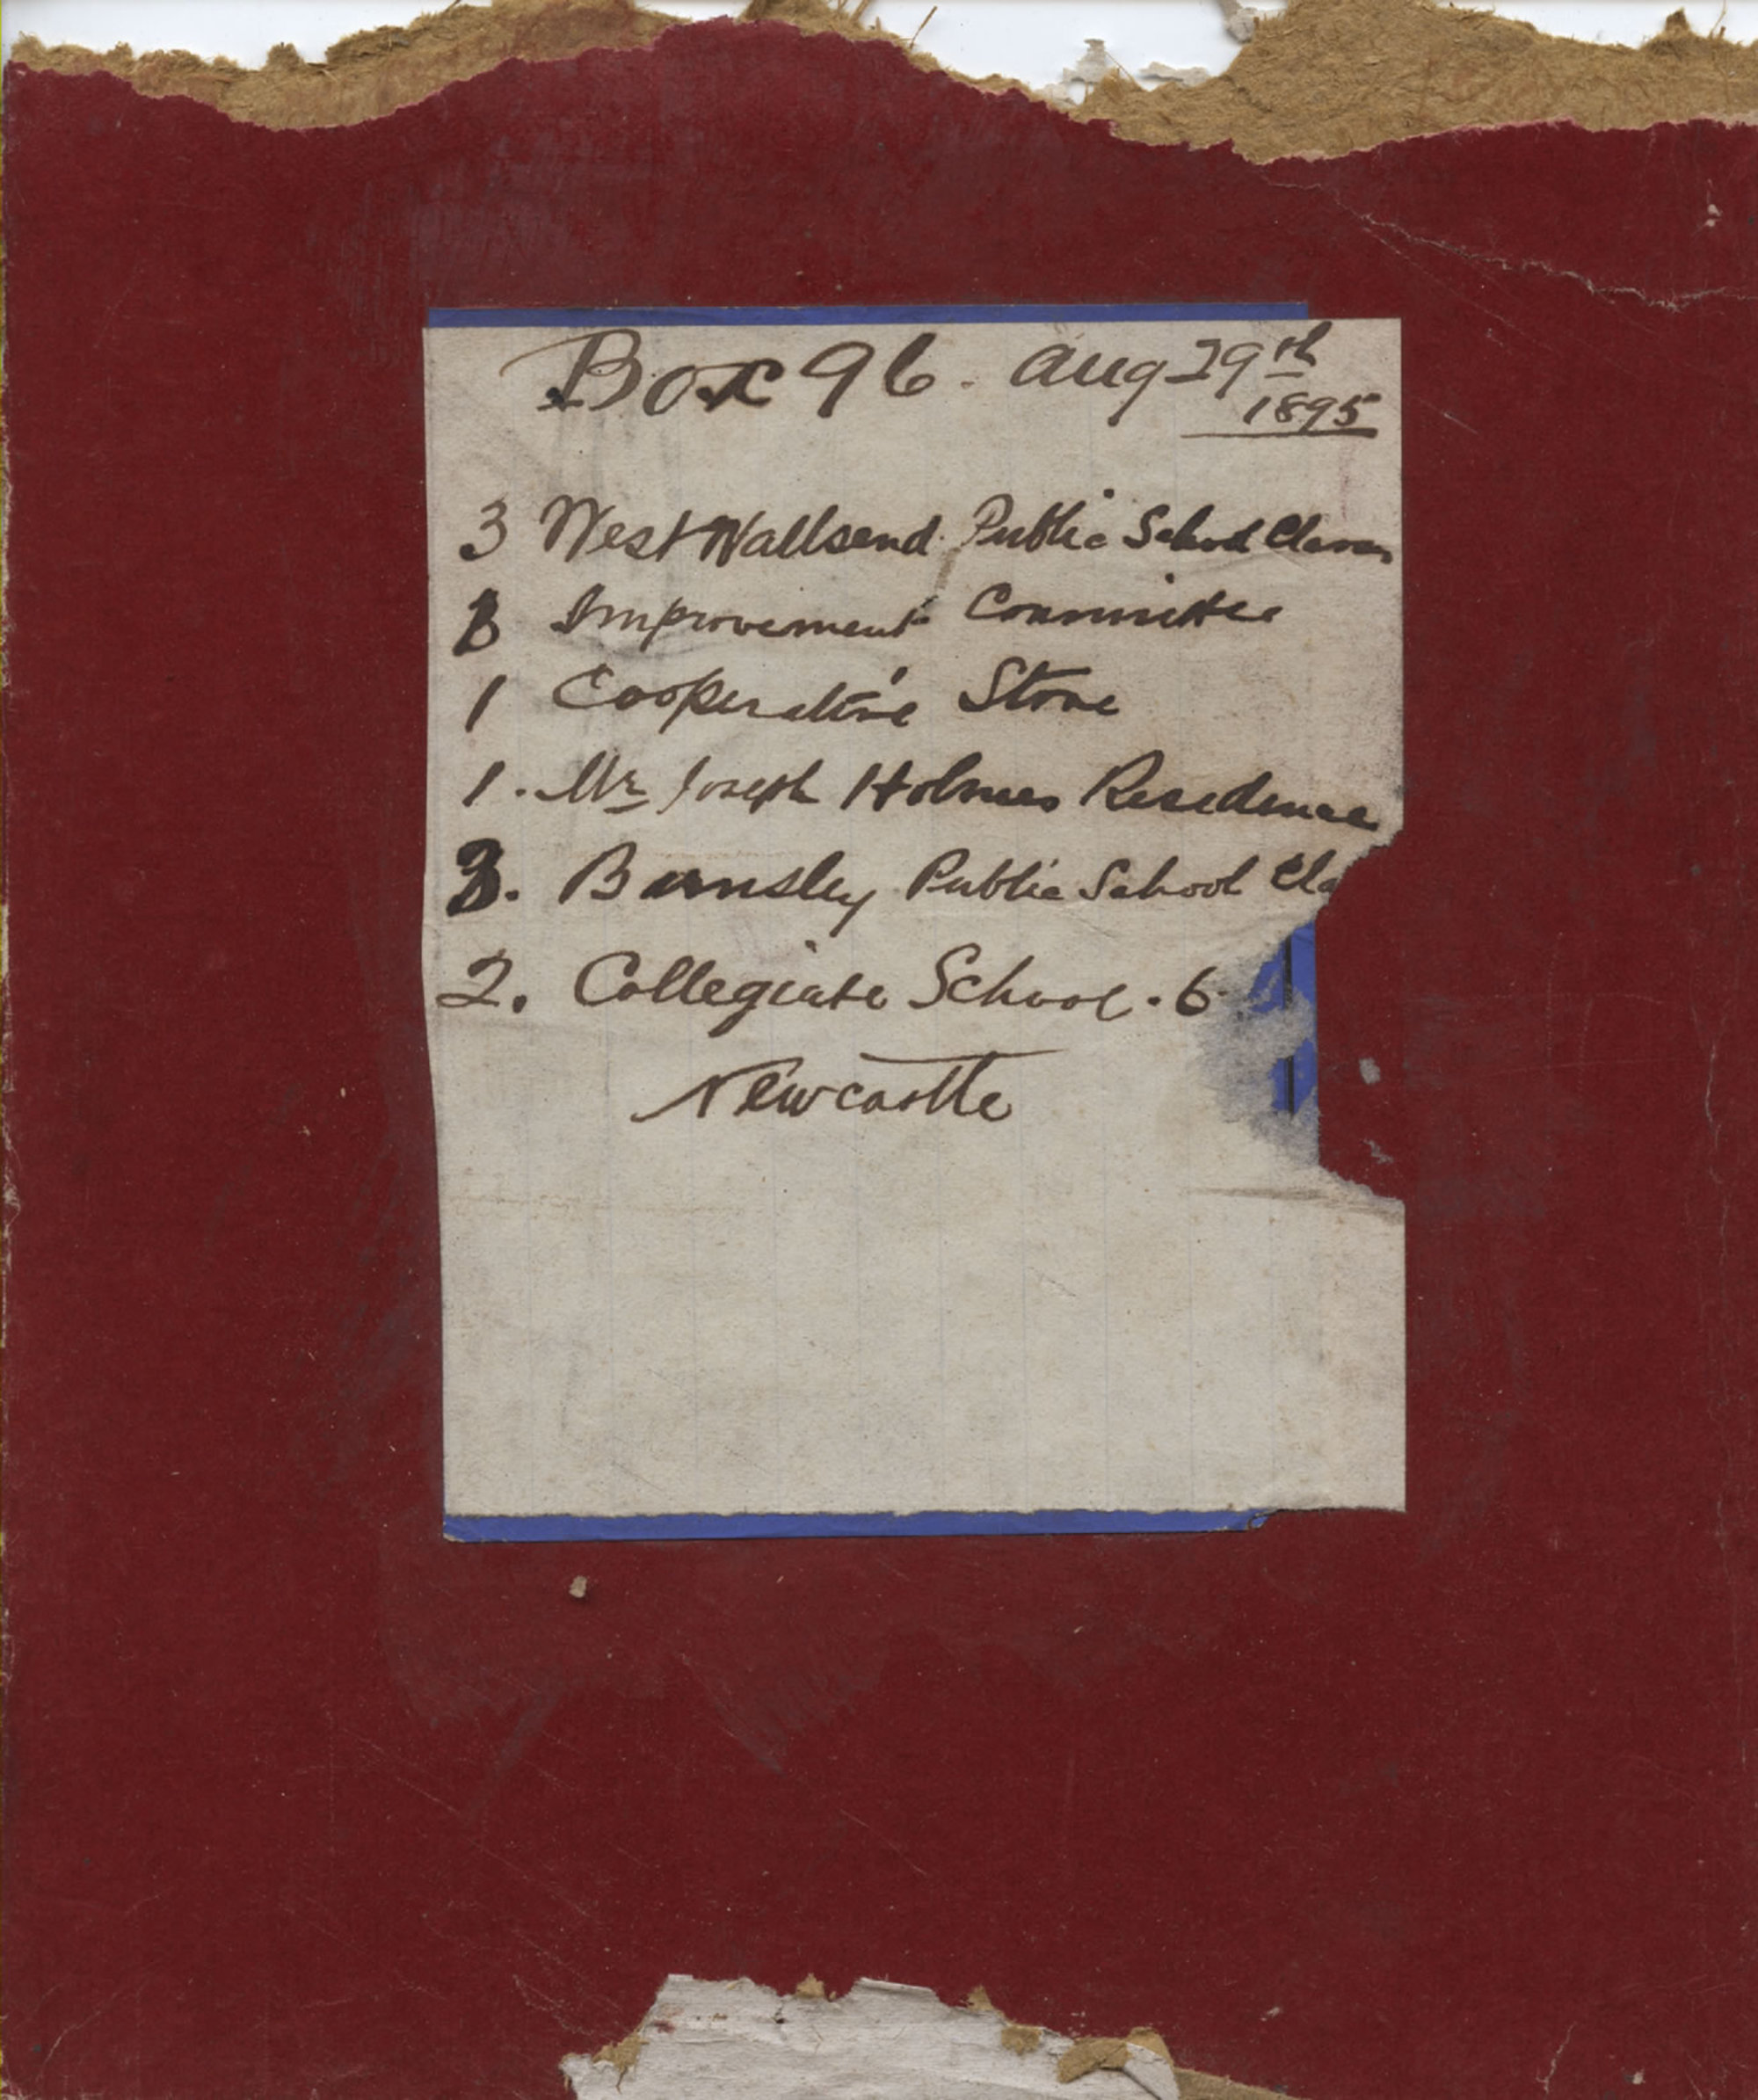 Box 96. Aug 29th
1895
3 West Wallsend Public School Classes
3 Improvement Committee
1 Cooperative Store
1. Mr Joseph Holmes Residence
3. Barnsley Public School Cla
2. Collegiate School. 6
Newcastle